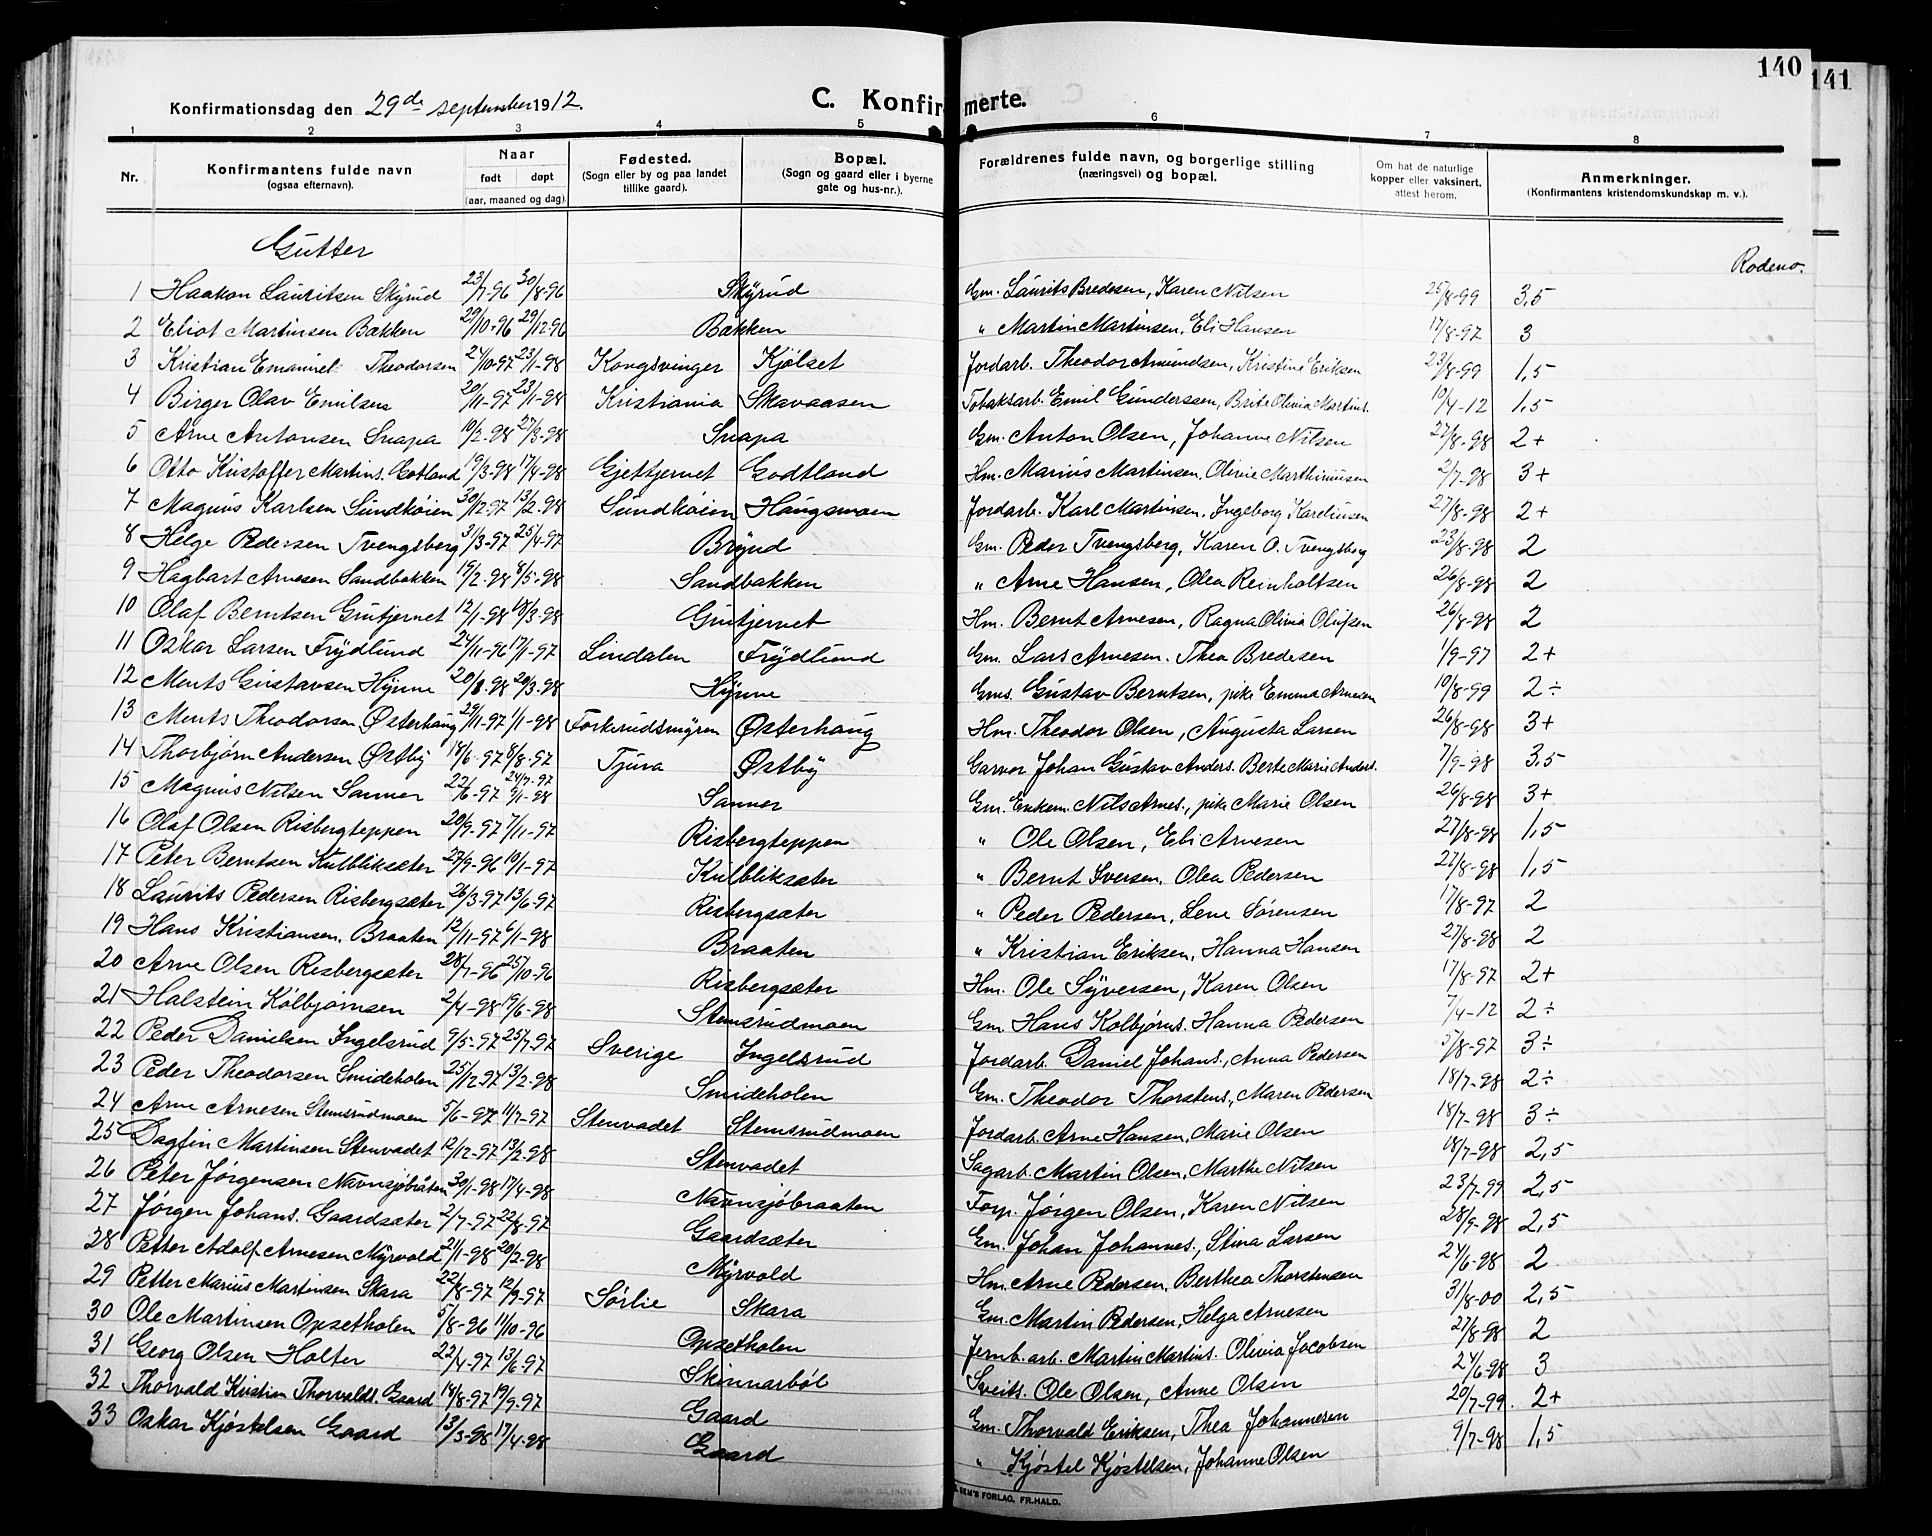 140
141
Konfirmationsdag den 29de september 1912.
C. Konfirmerte.
1 2 3 4 5 6 7 8
Nr.
Konfirmantens fulde navn (ogsaa efternavn).
Naar født døpt (aar, maaned og dag).
Fødested. (Sogn eller by og paa landet tillike gaard).
Bopæl. (Sogn og gaard eller i byerne gate og hus-nr.).
Forældrenes fulde navn, og borgerlige stilling (næringsvei) og bopæl.
Om hat de naturlige kopper eller vaksinert, attest herom.
Anmerkninger. (Konfirmantens kristendomskundskap m. v.).
Gutter
Rodeno.
1 Haakon Lauritsen Skyrud 23/7-96 30/8-96 Skyrud Gm. Laurits Bredesen, Karen Nilsen 25/8-99 3,5
2 Eliot Martinsen Bakken 29/10-96 29/12-96 Bakken " Martin Martinsen, Eli Hansen 17/8-97 3
3 Kristian Emanuel Theodorsen 24/10-97 23/1-98 Kongsvinger Kjølset Jordarb. Theodor Amundsen, Kristine Eriksen 23/8-99 1,5
4 Birger Olav Emilsen 20/11-97 23/1-98 Kristiania Skavaasen Tobaksarb. Emil Gunderssen, Brite Olivia Martins. 10/4-12 1,5
5 Arne Antonsen Snapa 10/2-98 27/3-98 Snapa Gm. Anton Olsen, Johanne Nilsen 27/8-98 2+
6 Otto Kristoffer Martins. Gotland 19/3-98 17/4-98 Gjettjernet Godtland Hm. Marius Martinsen, Olivie Marthinusen 2/7-98 3+
7 Magnus Karlsen Sundkøien 30/12-97 13/2-98 Sundkøien Haugsmoen Jordarb. Karl Martinsen, Ingeborg Karelinsen 27/8-98 2+
8 Helge Pedersen Tvengsberg 31/3-97 25/4-97 Brynd Gm. Peder Tvengsberg, Karen O. Tvengsberg 23/8-98 2
9 Hagbart Arnesen Sandbakken 19/2-98 8/5-98 Sandbakken " Arne Hansen, Olea Reinholtsen 26/8-98 2
10 Olaf Berntsen Grutjernet 12/1-98 18/3-98 Grutjernet Hm. Bernt Arnesen, Ragna Olivia Olufsen 26/8-98 2
11 Oskar Larsen Frydlund 24/11-96 17/1-97 Lindalen Frydlund Gm. Lars Arnesen, Thea Bredesen 1/9-97 2+
12 Ments Gustavsen Hynne 20/1-98 20/3-98 Hynne Gms. Gustav Berntsen, pike Emma Arnesen 10/8-99 2÷
13 Ments Theodorsen Østerhaug 29/11-97 1/1-98 Forkerudsmyren Østerhaug Hm. Theodor Olsen, Augusta Larsen 26/8-98 3+
14 Thorbjørn Andersen Østby 18/6-97 8/8-97 Tjura Østby Garver Johan Gustav Anders. Berte Marie Anders. 7/9-98 3,5
15 Magnus Nilsen Sanner 22/6-97 24/7-97 9/1-98 Sanner Gm. Enkem. Nils Arnes., pike Marie Olsen 26/8-98 3+
16 Olaf Olsen Risbergteppen 20/9-97 7/11-97 Risbergteppen " Ole Olsen, Eli Arnesen 27/8-98 1,5
17 Peter Berntsen Kulbliksæter 27/9-96 10/1-97 Kulbliksæter " Bernt Iversen, Olea Pedersen 27/8-98 1,5
18 Laurits Pedersen Risbergsæter 26/3-97 13/6-97 Risbergsæter " Peder Pedersen, Lene Sørensen 17/8-97 2
19 Hans Kristiansen Braaten 12/11-97 6/1-98 Braaten " Kristian Eriksen, Hanna Hansen 27/8-98 2
20 Arne Olsen Risbergsæter 28/7-96 25/10-96 Risbergsæter Hm. Ole Syversen, Karen Olsen 17/8-97 2+
21 Halstein Kolbjørnsen 2/4-98 19/6-98 Stemsrudmoen Gm. Hans Kolbjørns. Hanna Pedersen 7/4-12 2÷
22 Peder Danielsen Ingelsrud 9/5-97 25/7-97 Sverige Ingelsrud Jordarb. Daniel Johans., Anna Pedersen 5/8-97 3÷
23 Peder Theodorsen Smideholen 25/12-97 13/2-98 Smideholen Gm. Theodor Thorstens., Maren Pedersen 18/7-98 2÷
24 Arne Arnesen Stemsrudmoen 5/6-97 11/7-97 Stenvadet Stemsrudmoen Jordarb. Arne Hansen, Marie Olsen 18/7-98 3÷
25 Dagfin Martinsen Stenvadet 12/12-97 13/2-98 Stenvadet Sagarb. Martin Olsen, Marthe Nilsen 18/7-98 2,5
26 Peter Jørgensen Navnsjøbråten 30/1-98 17/4-98 Navnsjøbraaten Torp. Jørgen Olsen, Karen Nilsen 23/7-99 2,5
27 Jørgen Johans. Gaardsæter 2/7-97 22/8-97 Gaardsæter Gm. Johan Johannes., Stina Larsen 28/9-98 2,5
28 Petter Adolf Arnesen Myrvold 21/1-98 20/2-98 Myrvold Hm. Arne Pedersen, Berthea Thorstensen 24/6-98 2
29 Petter Marius Martinsen Skara 22/8-97 12/9-97 Sørlie Skara Gm. Martin Pedersen, Helga Arnesen 31/8-00 2,5
30 Ole Martinsen Opsetholen 5/8-96 11/10-96 Opsetholen Jernb. arb. Martin Martins. Olivia Jocobsen 27/8-98 2
31 Georg Olsen Holter 22/4-97 13/6-97 Skinnarbøl Sveits. Ole Olsen, Anne Olsen 24/6-98 3
32 Thorvald Kristian Thorvalds. Gaard 18/8-97 19/9-97 Gaard Gm. Thorvald Eriksen, Thea Johannesen 20/7-99 2+
33 Oskar Kjøstelsen Gaard 13/3-98 17/4-98 Gaard " Kjøstel Kjøstelsen, Johanne Olsen 9/7-98 1,5
SEM'S FORLAG, FR.HALD.